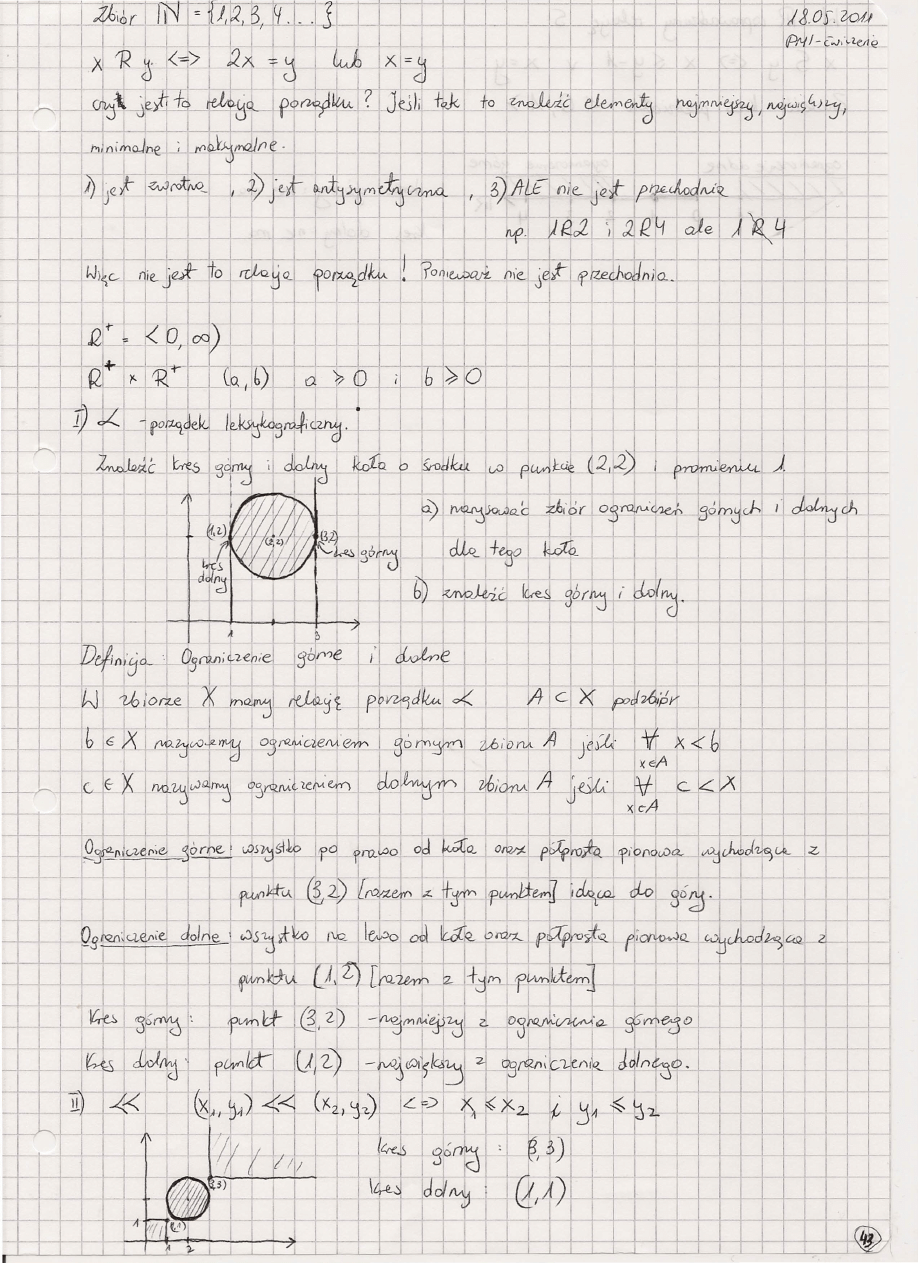 Zbiór IN = {1,2,3,4...}
18.05.2011
PM1-ćwiczenia
x R y <=> 2x = y lub x = y
czy jest to relacja porządku? Jeśli tak to znaleźć elementy najmniejszy, największy,
minimalne i maksymalne.
1) jest zwrotna , 2) jest antysymetryczna , 3) ALE nie jest przechodnia
np. 1R2 i 2R4 ale 1 R̸ 4
Więc nie jest to relacja porządku! Ponieważ nie jest przechodnia.
R⁺ = <0,∞)
R⁺ × R⁺ (a,b) a ⩾ 0 i b ⩾ 0
I) ≺ -porządek leksykograficzny.
Znaleźć kres górny i dolny koła o środku w punkcie (2,2) i promieniu 1.
a) narysować zbiór ograniczeń górnych i dolnych
dla tego koła
b) znaleźć kres górny i dolny.
(1,2) (2,2) (3,2)
kres dolny
kres górny
1 3
Definicja: Ograniczenie górne i dolne
W zbiorze X mamy relację porządku ≺ A ⊂ X podzbiór
b ∈ X nazywamy ograniczeniem górnym zbioru A jeśli ∀ x∈A x < b
c ∈ X nazywamy ograniczeniem dolnym zbioru A jeśli ∀ x∈A c < x
Ograniczenie górne: wszystko po prawo od koła oraz półprosta pionowa wychodząca z
punktu (3,2) [razem z tym punktem] idąca do góry.
Ograniczenie dolne: wszystko na lewo od koła oraz półprosta pionowa wychodząca z
punktu (1,2) [razem z tym punktem]
Kres górny: punkt (3,2) -najmniejszy z ograniczenia górnego
Kres dolny: punkt (1,2) -największy z ograniczenia dolnego.
II) ≪ (x₁,y₁) ≪ (x₂,y₂) <=> x₁ ⩽ x₂ i y₁ ⩽ y₂
kres górny: (3,3)
kres dolny: (1,1)
(3,3)
1 (1,1)
1 2
43